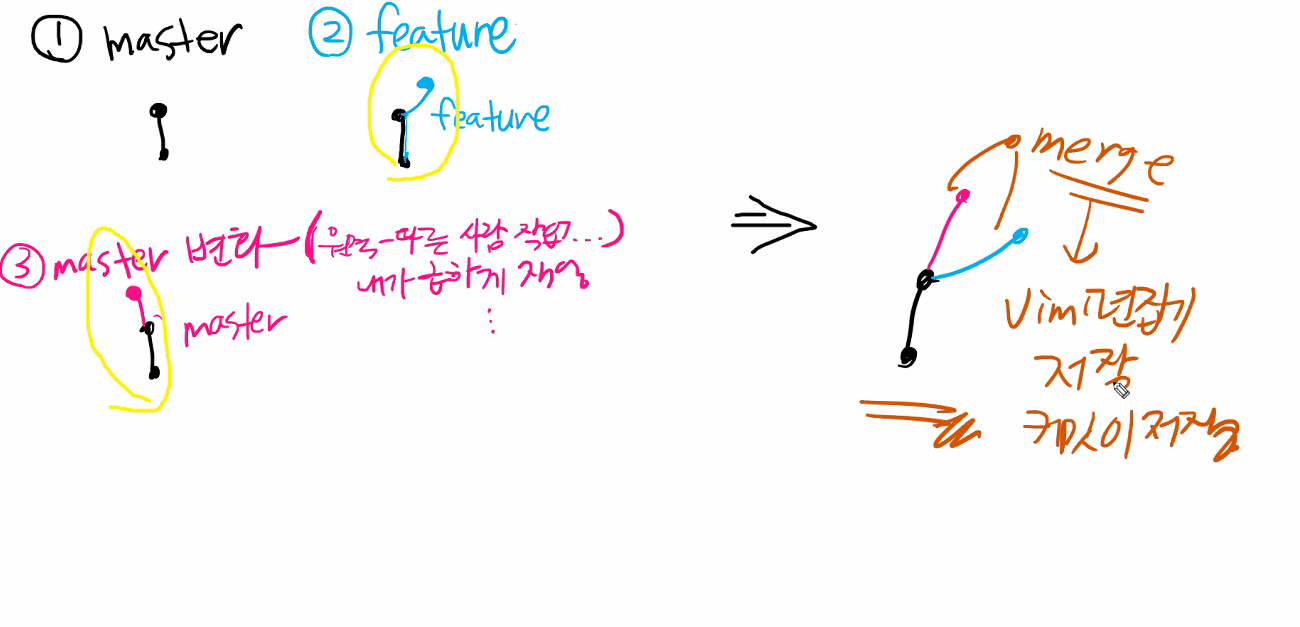 ① master
② feature
feature
③ master 변화 (원격-다른 사람 작업...)
내가 급하게 작업
⋮
master
merge
Vim편집기
저장
커밋이 저장